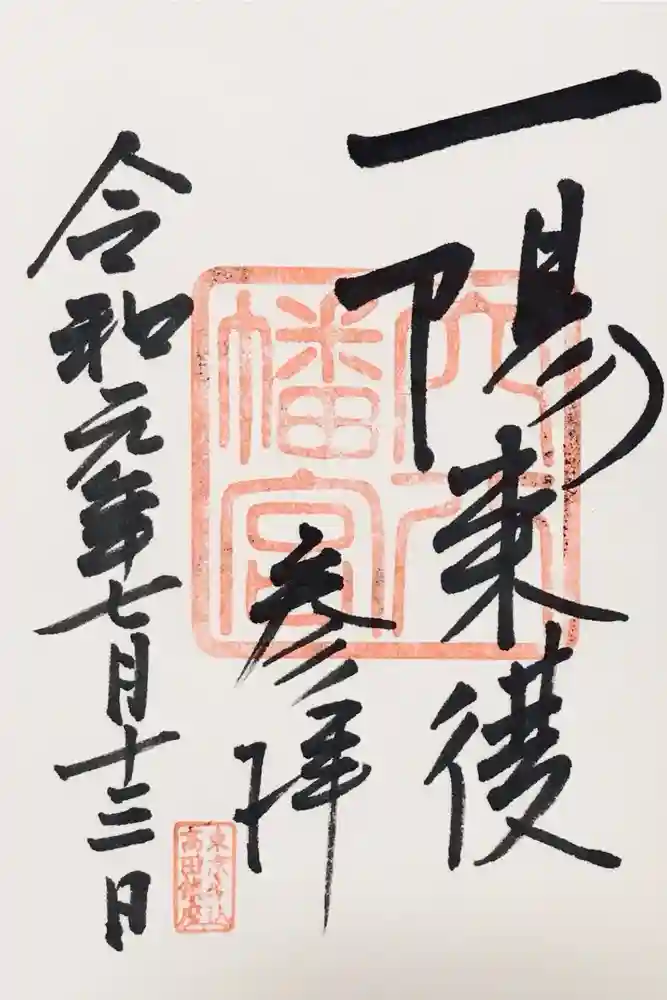 一陽来復
参拝
令和元年七月十三日
穴八
幡宮
東京名社
高田鎮座